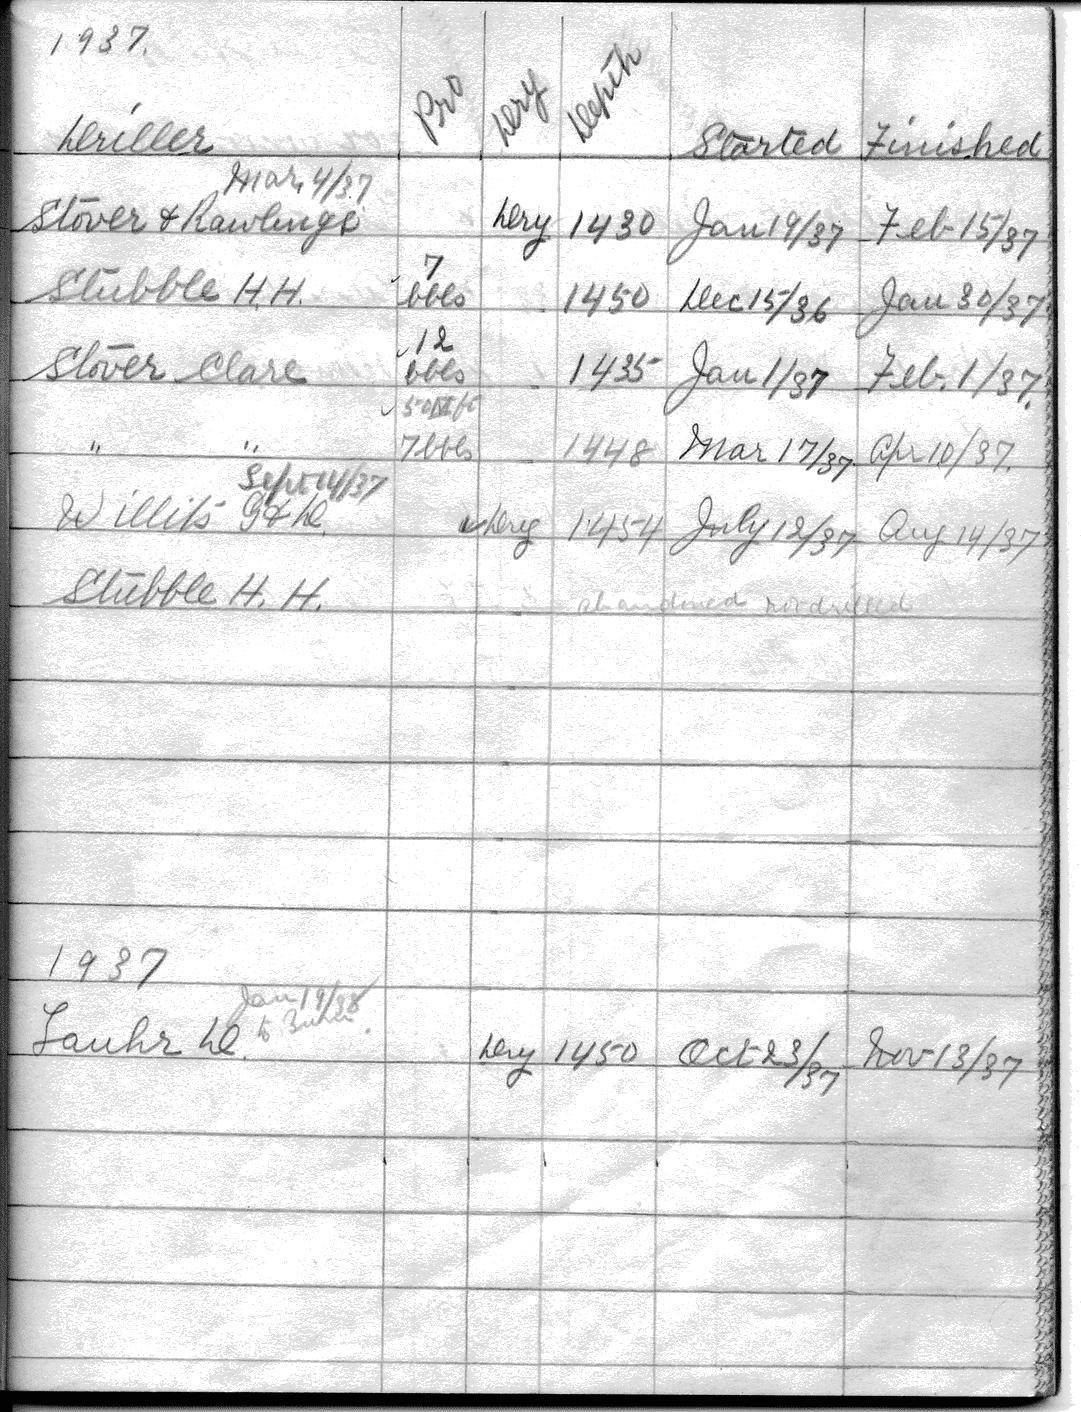 1937.
Driller Pro Dry Depth Started Finished
Mar, 4/37
Stover & Rawlings Dry 1430 Jan 19/37 Feb 15/37
7
Stubble H.H. bbls 1450 Dec 15/36 Jan 30/37
12
Stover Clare bbls 1435 Jan 1/37 Feb. 1/37.
" " 7 bbls 1448 Mar 17/37 Apr 10/37.
Sept 14/37
Willits G & D. Dry 1454 July 12/37 Aug 14/37
Stubble H. H. abandoned not drilled
1937
Jan 19/38
Lauhr D. Dry 1450 Oct 23/37 Nov 13/37